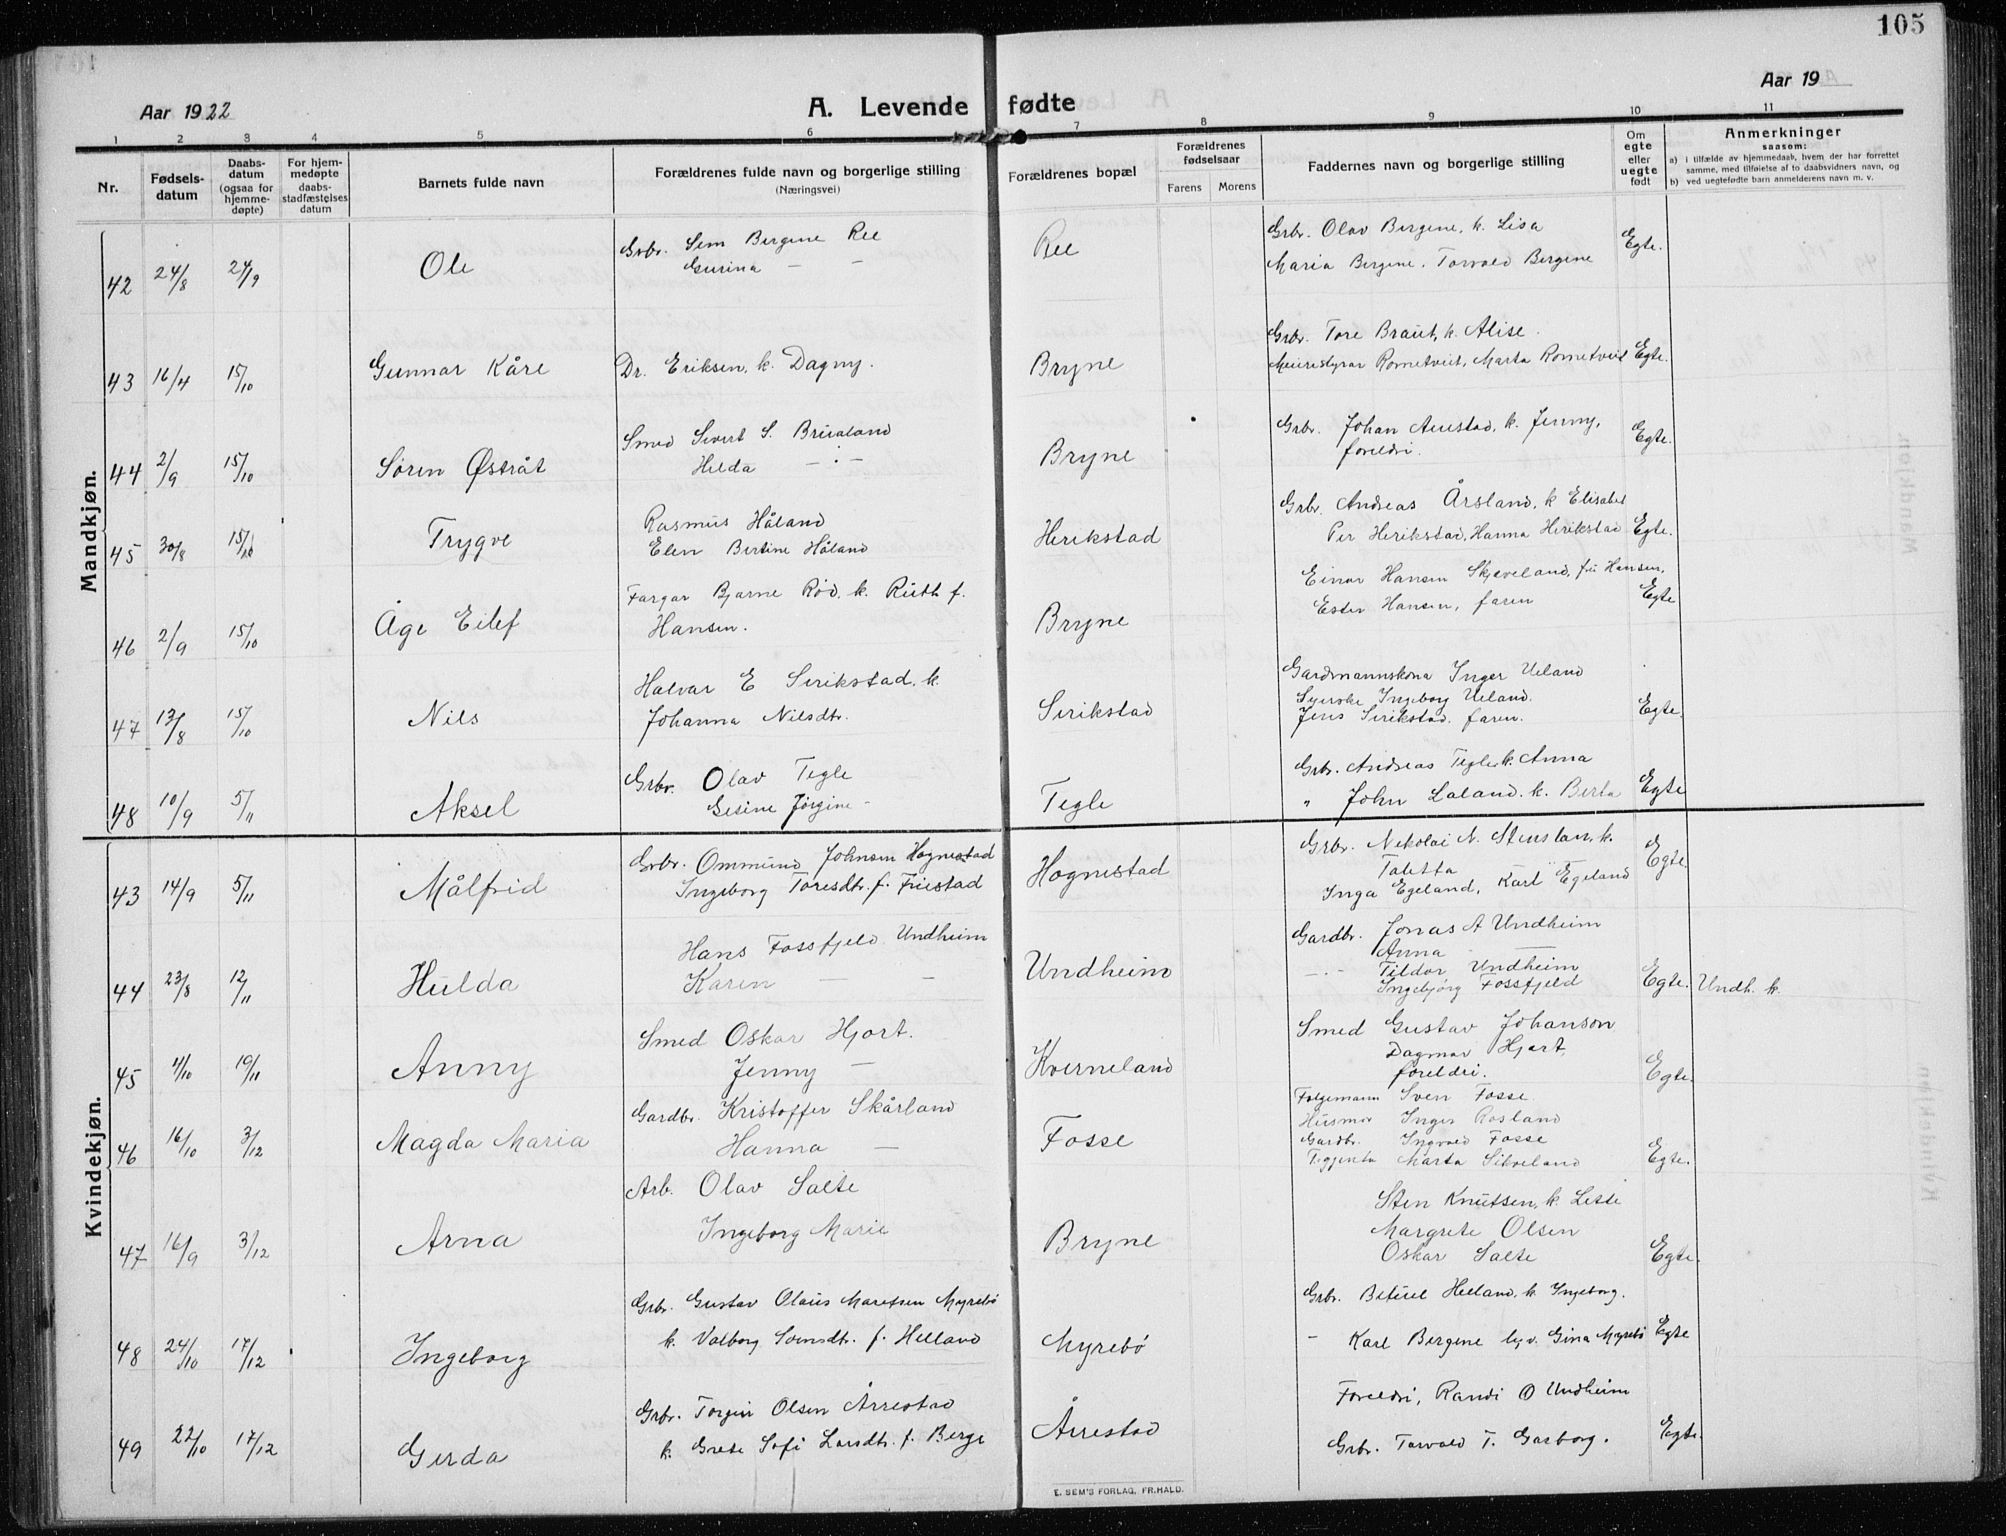 105
Aar 1922
A. Levende fødte
Aar 19
1 2 3 4 5 6 7 8 9 10 11
Nr.
Fødsels-
datum
Daabs-
datum
(ogsaa for
hjemme-
døpte)
For hjem-
medøpte
daabs-
stadfæstelses
datum
Barnets fulde navn
Forældrenes fulde navn og borgerlige stilling
(Næringsvei)
Forældrenes bopæl
Forældrenes
fødselsaar
Farens Morens
Faddernes navn og borgerlige stilling
Om
egte
eller
uegte
født
Anmerkninger
saasom:
a) i tilfælde av hjemmedaab, hvem der har forrettet
samme, med tilføielse af to daabsvidners navn, og
b) ved uegtefødte barn anmelderens navn m. v.
Mandkjøn.
42 24/8 24/9 Ole
Grbr. Sem Bergene Ree
Gurina — —
Ree
Grbr. Olav Bergene, k. Lisa
Maria Bergene. Torvald Bergene
Egte.
43 16/4 15/10 Gunnar Kåre
Dr. Eriksen, k. Dagny.
Bryne
Grbr. Tore Braut, k. Alise.
Meieristyrar Rometveit, Marta Rometveit
Egte.
44 2/9 15/10 Søren Østråt
Smed Sivert S. Brualand
Hilda — " —
Bryne
Grbr. Johan Aurstad, k. Jenny,
foreldri.
Egte.
45 30/8 15/10 Trygve
Rasmus Håland
Elen Bertine Håland
Herikstad
Grbr. Andreas Årsland, k Elisabet
Per Herikstad, Hanna Herikstad
Egte.
46 2/9 15/10 Åge Eilef
Fargar Bjarne Rød, k. Ruth f.
Hansen.
Bryne
Einar Hansen Skjæveland, fru Hansen,
Ester Hansen, faren
Egte
47 13/8 15/10 Nils
Halvar E Serikstad, k.
Johanna Nilsdtr.
Serikstad
Gardmannskona Inger Ueland
Syerske Ingeborg Ueland.
Jens Serikstad. faren.
Egte.
48 10/9 5/11 Aksel
Grbr. Olav Tegle
Gesine Jørgine -
Tegle
Grbr. Andreas Tegle k. Anna
" John Laland. k. Berta
Egte
Kvindekjøn.
43 14/9 5/11 Målfrid
Grbr. Ommund Johnsen Hognestad
Ingeborg Toresdtr. f. Friestad
Hognestad
Grbr. Nekolai N. Stenslan, k.
Taletta
Inga Egeland, Karl Egeland
Egte.
44 23/8 12/11 Hulda
Hans Fossfjeld Undheim
Karen — —
Undheim
Gardbr. Jonas A Undheim
Anna —
— " — Tildor Undheim
Ingebjørg Fossfjeld
Egte. Undh. k.
45 4/10 19/11 Anny
Smed Oskar Hjort.
Jenny —
Kverneland
Smed Gustav Johanson
Dagmar Hjort,
foreldri.
Egte.
46 16/10 3/12 Magda Maria
Gardbr. Kristoffer Skårland
Hanna —
Fosse
Folgemann Sven Fosse.
Husmor Inger Rosland
Gardbr. Ingvald Fosse
Marta Sikveland
Egte.
47 16/9 3/12 Arna
Arb. Olav Salte
Ingeborg Marie
Bryne
Sten Knutsen, k. Lisse
Margrete Olsen
Oskar Salte
Egte.
48 24/10 17/12 Ingeborg
Grbr. Gustav Olaus Maretsen Myrebø
k. Valborg Svensdtr. f. Helland
Myrebø
Grbr. Betuel Helland, k. Ingeborg.
- Karl Bergene Gina Myrebø
Egte
49 22/10 17/12 Gerda
Grbr. Torgeir Olsen Årrestad
k. Grete Sofi Larsdtr. f. Berge
Årrestad
Foreldri, Randi O Undheim
Grbr. Torvald T. Garborg.
Egte.
E. SEM'S FORLAG, FR.HALD.